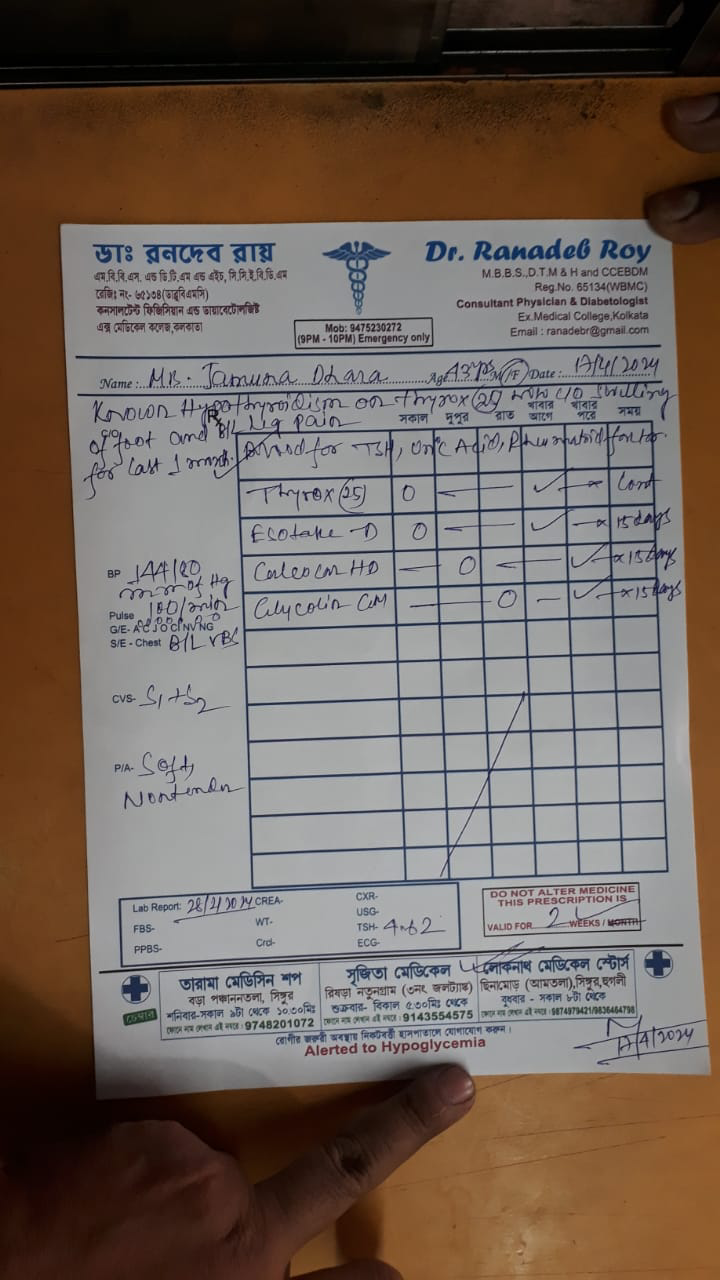 ডাঃ রনদেব রায়
এম.বি.বি.এস. এন্ড ডি.টি.এম এন্ড এইচ, সি.সি.ই.বি.ডি.এম
রেজিঃ নং- ৬৫১৩৪(ডাব্লুবিএমসি)
কনসালটেন্ট ফিজিসিয়ান এন্ড ডায়াবেটোলজিষ্ট
এক্স মেডিকেল কলেজ,কলকাতা
Mob: 9475230272
(9PM - 10PM) Emergency only
Dr. Ranadeb Roy
M.B.B.S.,D.T.M & H and CCEBDM
Reg.No. 65134(WBMC)
Consultant Physician & Diabetologist
Ex.Medical College,Kolkata
Email : ranadebr@gmail.com
Name: Jamuna Dhara Age 43yrs M/F Date: 17/4/2024
Known Hypothyroidism on Thyrox (25) now c/o swelling
of foot and B/L leg pain
for last 1 month
Rx
সকাল দুপুর রাত খাবার আগে খাবার পরে সময়
Blood for TSH, Uric Acid, Rheumatoid factor
Thyrox (25) 0 Cont
Esotake-D 0 x 15 days
Calcocar HD 0 x 15 days
Glycolin GM 0 x 15 days
BP 144/80
mm of Hg
Pulse 100/min
G/E- A C J O Cl NV NG
S/E - Chest B/L VBS
CVS- S1+S2
P/A- Soft,
Nontender
Lab Report: 28/2/2024 CREA- CXR-
USG-
FBS- WT- TSH- 4.62
PPBS- Crd- ECG-
DO NOT ALTER MEDICINE
THIS PRESCRIPTION IS
VALID FOR 2 WEEKS / MONTH
চেম্বার
তারামা মেডিসিন শপ
বড়া পঞ্চাননতলা, সিঙ্গুর
শনিবার-সকাল ৯টা থেকে ১০:৩০মিঃ
ফোনে নাম লেখান এই নম্বরে : 9748201072
সৃজিতা মেডিকেল
রিষড়া নতুনগ্রাম (৩নং জলট্যাঙ্ক)
শুক্রবার- বিকাল ৫:৩০মিঃ থেকে
ফোনে নাম লেখান এই নম্বরে : 9143554575
লোকনাথ মেডিকেল স্টোর্স
ছিনামোড় (আমতলা),সিঙ্গুর,হুগলী
বুধবার - সকাল ৮টা থেকে
ফোনে নাম লেখান এই নম্বরে : 9874979421/9836464798
রোগীর জরুরী অবস্থায় নিকটবর্তী হাসপাতালে যোগাযোগ করুন।
Alerted to Hypoglycemia
17/4/2024